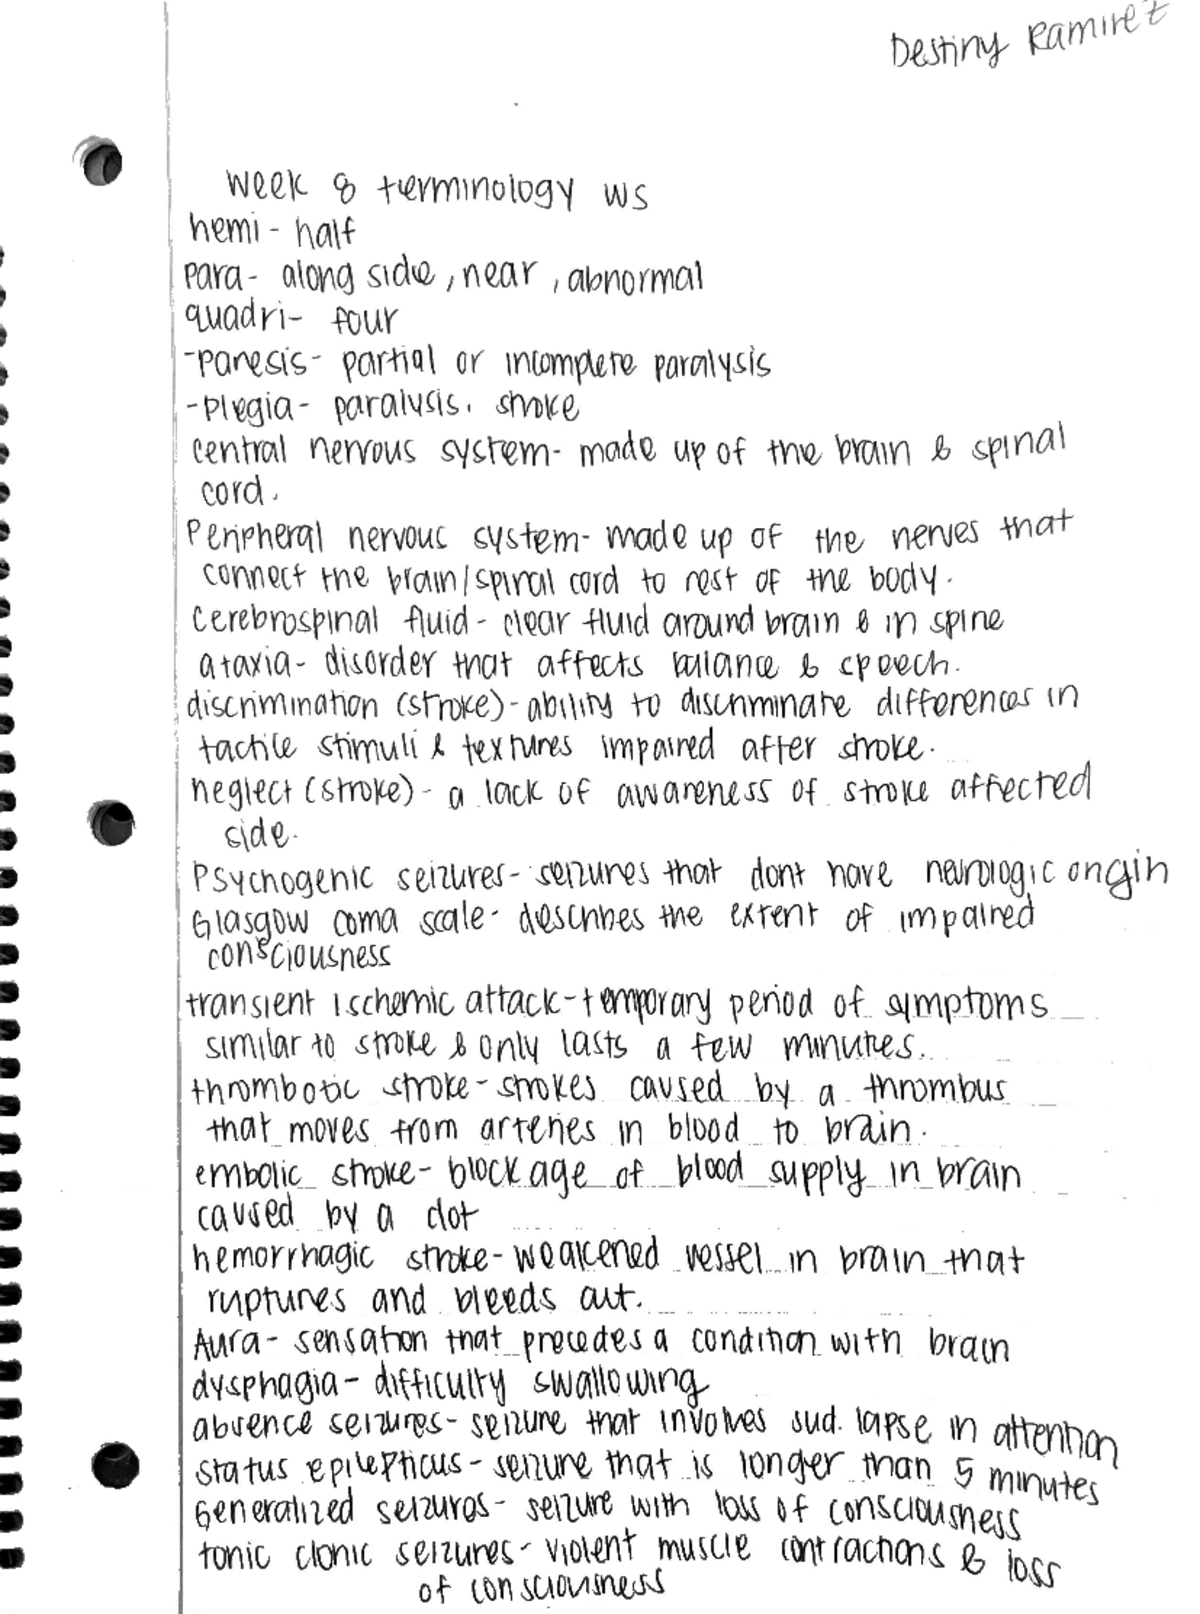 Destiny Ramirez
week 8 terminology ws
hemi - half
para - along side, near, abnormal
quadri - four
-paresis - partial or incomplete paralysis
-plegia - paralysis, stroke
central nervous system - made up of the brain & spinal
cord.
Peripheral nervous system - made up of the nerves that
connect the brain/spinal cord to rest of the body.
cerebrospinal fluid - clear fluid around brain & in spine
ataxia - disorder that affects balance & speech.
discrimination (stroke) - ability to discriminate differences in
tactile stimuli & textures impaired after stroke.
neglect (stroke) - a lack of awareness of stroke affected
side.
Psychogenic seizures - seizures that dont have neurologic origin
Glasgow coma scale - describes the extent of impaired
consciousness
transient ischemic attack - temporary period of symptoms
similar to stroke & only lasts a few minutes.
thrombotic stroke - strokes caused by a thrombus
that moves from arteries in blood to brain.
embolic stroke - blockage of blood supply in brain
caused by a clot
hemorrhagic stroke - weakened vessel in brain that
ruptures and bleeds out.
Aura - sensation that precedes a condition with brain
dysphagia - difficulty swallowing
absence seizures - seizure that involves sud. lapse in attention
status epilepticus - seizure that is longer than 5 minutes
Generalized seizures - seizure with loss of consciousness
tonic clonic seizures - violent muscle contractions & loss
of consciousness